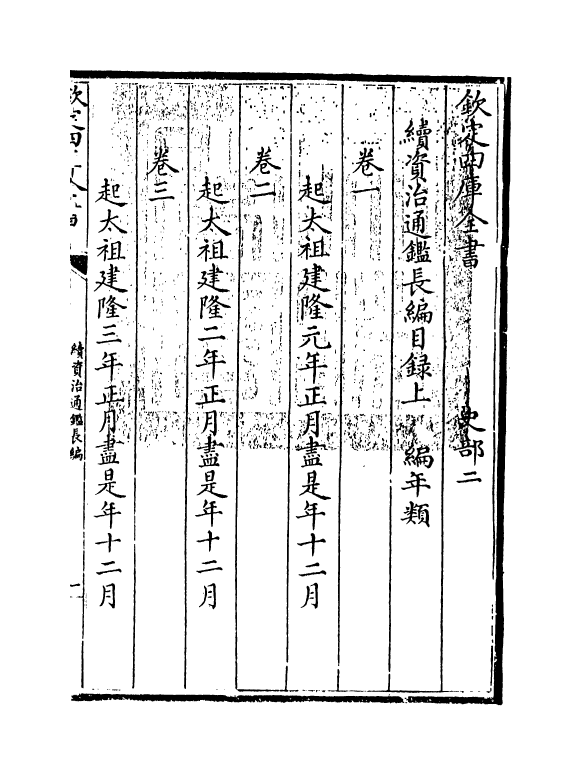 欽定四庫全書 史部二
續資治通鑑長編目録上 編年類
卷一
起太祖建隆元年正月盡是年十二月
卷二
起太祖建隆二年正月盡是年十二月
卷三
起太祖建隆三年正月盡是年十二月
續資治通鑑長編
一